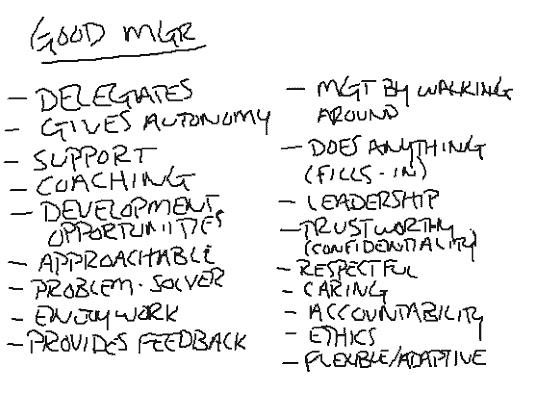 GOOD MGR
- DELEGATES
- GIVES AUTONOMY
- SUPPORT
- COACHING
- DEVELOPMENT
OPPORTUNITIES
- APPROACHABLE
- PROBLEM-SOLVER
- ENJOY WORK
- PROVIDES FEEDBACK
- MGT BY WALKING
AROUND
- DOES ANYTHING
(FILLS-IN)
- LEADERSHIP
- TRUSTWORTHY
(CONFIDENTIALITY)
- RESPECTFUL
- CARING
- ACCOUNTABILITY
- ETHICS
- FLEXIBLE/ADAPTIVE